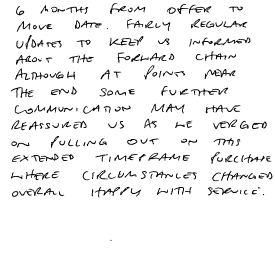 6 MONTHS FROM OFFER TO
MOVE DATE. FAIRLY REGULAR
UPDATES TO KEEP US INFORMED
ABOUT THE FORWARD CHAIN
ALTHOUGH AT POINTS NEAR
THE END SOME FURTHER
COMMUNICATION MAY HAVE
REASSURED US AS WE VERGED
ON PULLING OUT ON THIS
EXTENDED TIMEFRAME PURCHASE
WHERE CIRCUMSTANCES CHANGED
OVERALL HAPPY WITH SERVICE.